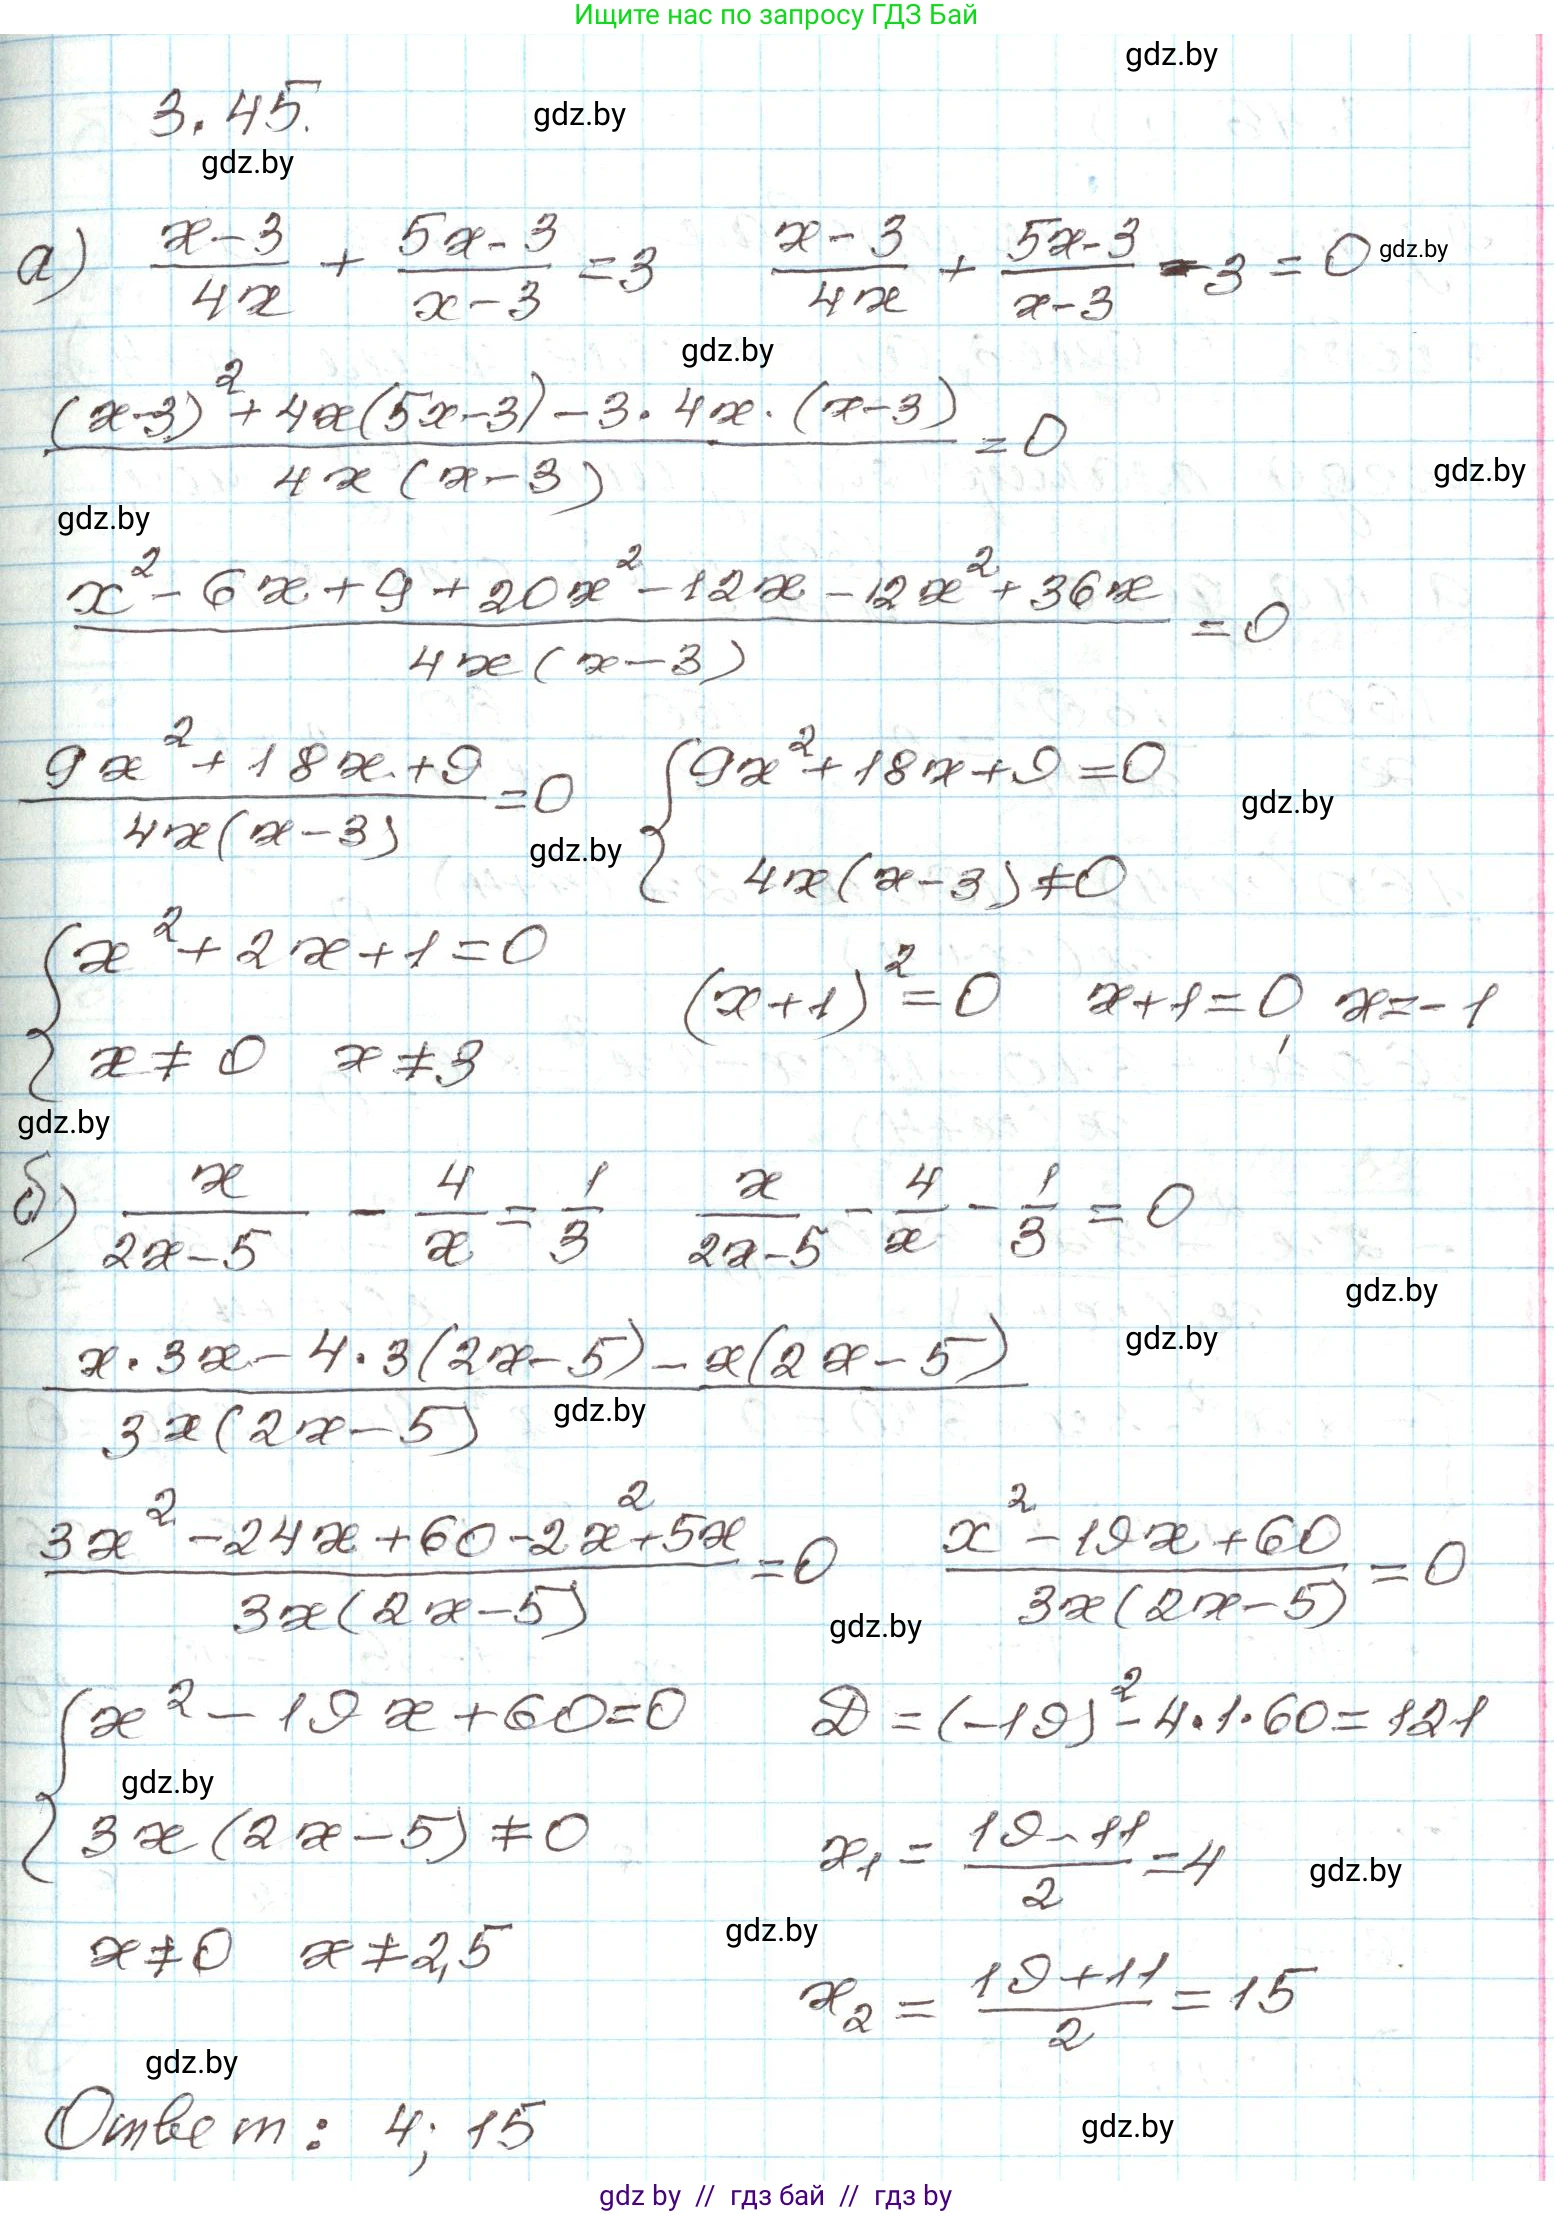 Ищите нас по запросу ГДЗ Бай
gdz.by
3.45.
gdz.by
gdz.by
а) (x-3)/(4x) + (5x-3)/(x-3) = 3   (x-3)/(4x) + (5x-3)/(x-3) - 3 = 0
gdz.by
gdz.by
((x-3)² + 4x(5x-3) - 3·4x·(x-3))/(4x(x-3)) = 0
gdz.by
gdz.by
(x² - 6x + 9 + 20x² - 12x - 12x² + 36x)/(4x(x-3)) = 0
(9x² + 18x + 9)/(4x(x-3)) = 0   { 9x² + 18x + 9 = 0
gdz.by
gdz.by
4x(x-3) ≠ 0
{ x² + 2x + 1 = 0   (x+1)² = 0   x+1 = 0, x = -1
x ≠ 0   x ≠ 3
gdz.by
б) x/(2x-5) - 4/x = 1/3   x/(2x-5) - 4/x - 1/3 = 0
gdz.by
gdz.by
(x·3x - 4·3(2x-5) - x(2x-5))/(3x(2x-5))
gdz.by
(3x² - 24x + 60 - 2x² + 5x)/(3x(2x-5)) = 0   (x² - 19x + 60)/(3x(2x-5)) = 0
gdz.by
{ x² - 19x + 60 = 0   D = (-19)² - 4·1·60 = 121
gdz.by
3x(2x-5) ≠ 0   x₁ = (19-11)/2 = 4
gdz.by
gdz.by
x ≠ 0   x ≠ 2,5   x₂ = (19+11)/2 = 15
gdz.by
Ответ: 4; 15
gdz.by
gdz by // гдз бай // гдз by